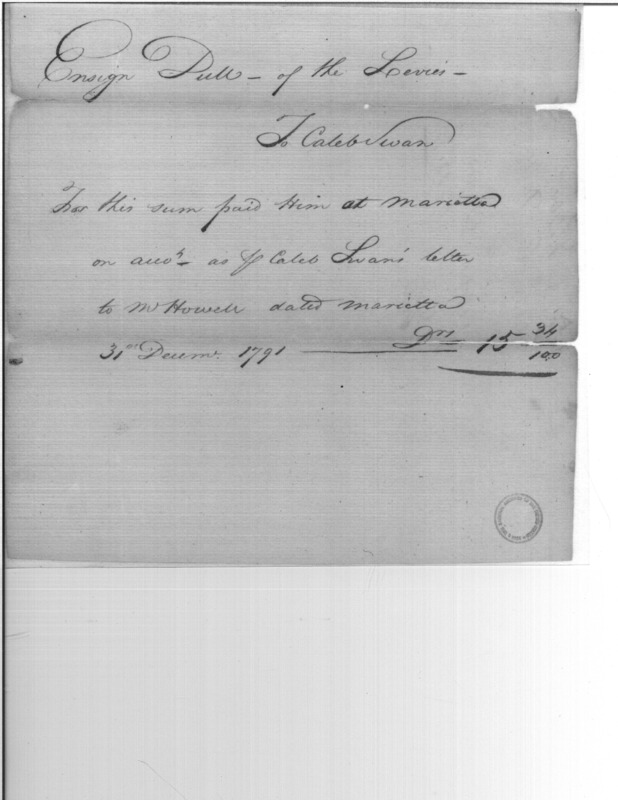 Ensign Dull - of the Levies -
To Caleb Swan
For this sum paid him at Marietta
on acco.t - as ⅌ Caleb Swan's letter
to Mr Howell dated Marietta
31st Decemr. 1791 Drs 15 34/100